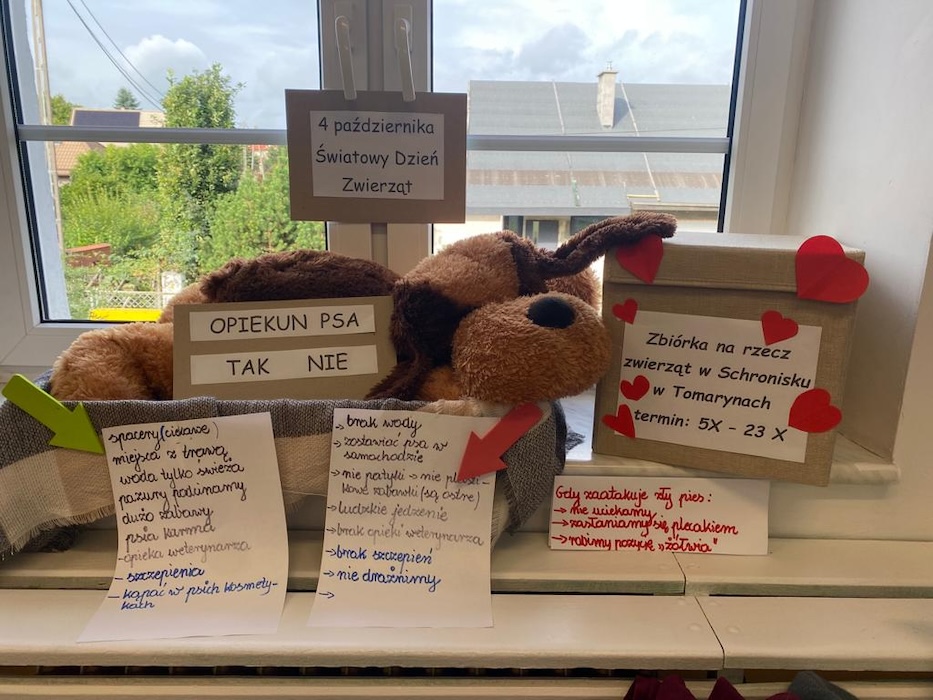 4 października
Światowy Dzień
Zwierząt
OPIEKUN PSA
TAK NIE
spacery (ciekawe)
miejsca z trawą
woda tylko świeża
pazury podcinamy
dużo zabawy
psia karma
- opieka weterynarza
- szczepienia
- kąpać w psich kosmety-
kach
→ brak wody
→ zostawiać psa w
samochodzie
→ nie patyki → nie
kowe zabawki (są ostre)
→ ludzkie jedzenie
→ brak opieki weterynarza
→ brak szczepień
→ nie drażnimy
→
Zbiórka na rzecz
zwierząt w Schronisku
w Tomarynach
termin: 5X - 23 X
Gdy zaatakuje zły pies:
→ nie uciekamy
→ zasłaniamy się plecakiem
→ robimy pozycję „żółwia"